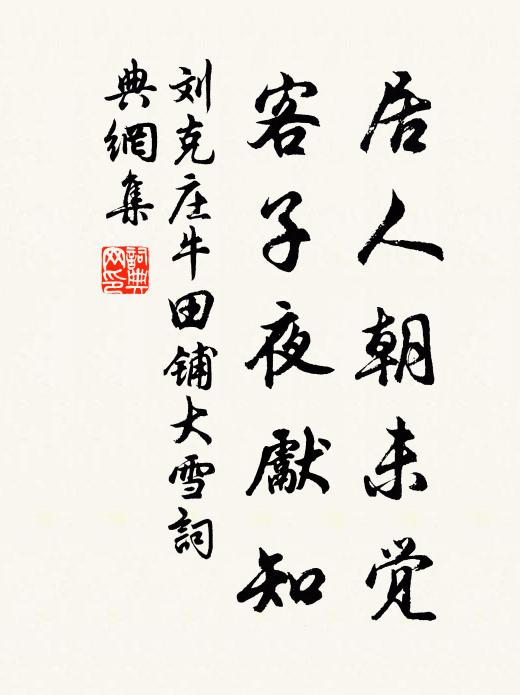 居人朝未觉
客子夜獻知
刘克庄牛田鋪大雪詞
典網集
詞典网印